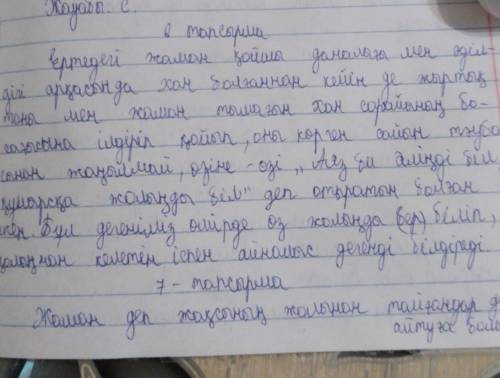 Жауабы: С.
6 тапсырма
Ертедегі жаман қойшы даналыға мен әділ-
дігі арқасында хан болғаннан кейін де жортық
тоны мен жаман тымағын хан сарайының бо-
сағасына ілдіріп қойып, оны көрген сайын тәуба
сынан жаңылмай, өзіне-өзі „Аяз би әліңді біл
құмырсқа жолыңды біл" деп отыратын болған
екен Бұл дегеніміз өмірде өз жолыңда (бер) біліп,
қолыңнан келетін іспен айналыс дегенді білдіреді
7 - тапсырма
Жаман деп жақсының жолынан тайғандар д
айтуға бола